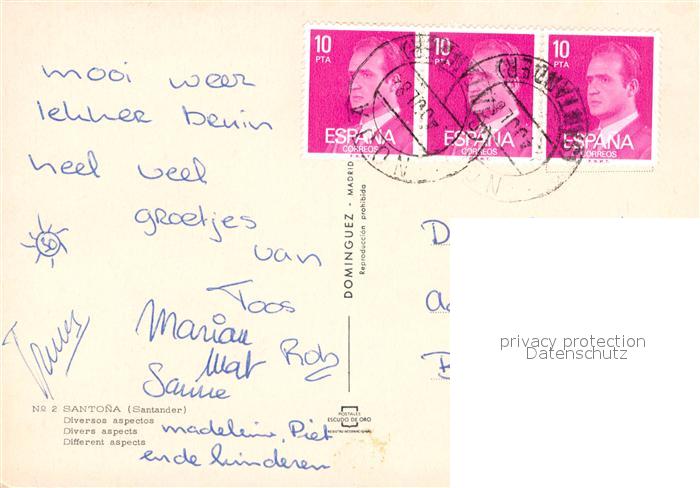 10 PTA 10 PTA 10 PTA
ESPAÑA ESPAÑA ESPAÑA
CORREOS CORREOS CORREOS
mooi weer
lekker bruin
heel veel
groetjes
van
50
Toos
Marian
Mat Rob
Sanne
madeleine, Piet
en de kinderen
Nº 2 SANTOÑA (Santander)
Diversos aspectos
Divers aspects
Different aspects
DOMINGUEZ - MADRID
Reproducción prohibida
POSTALES
ESCUDO DE ORO
D
privacy protection
Datenschutz